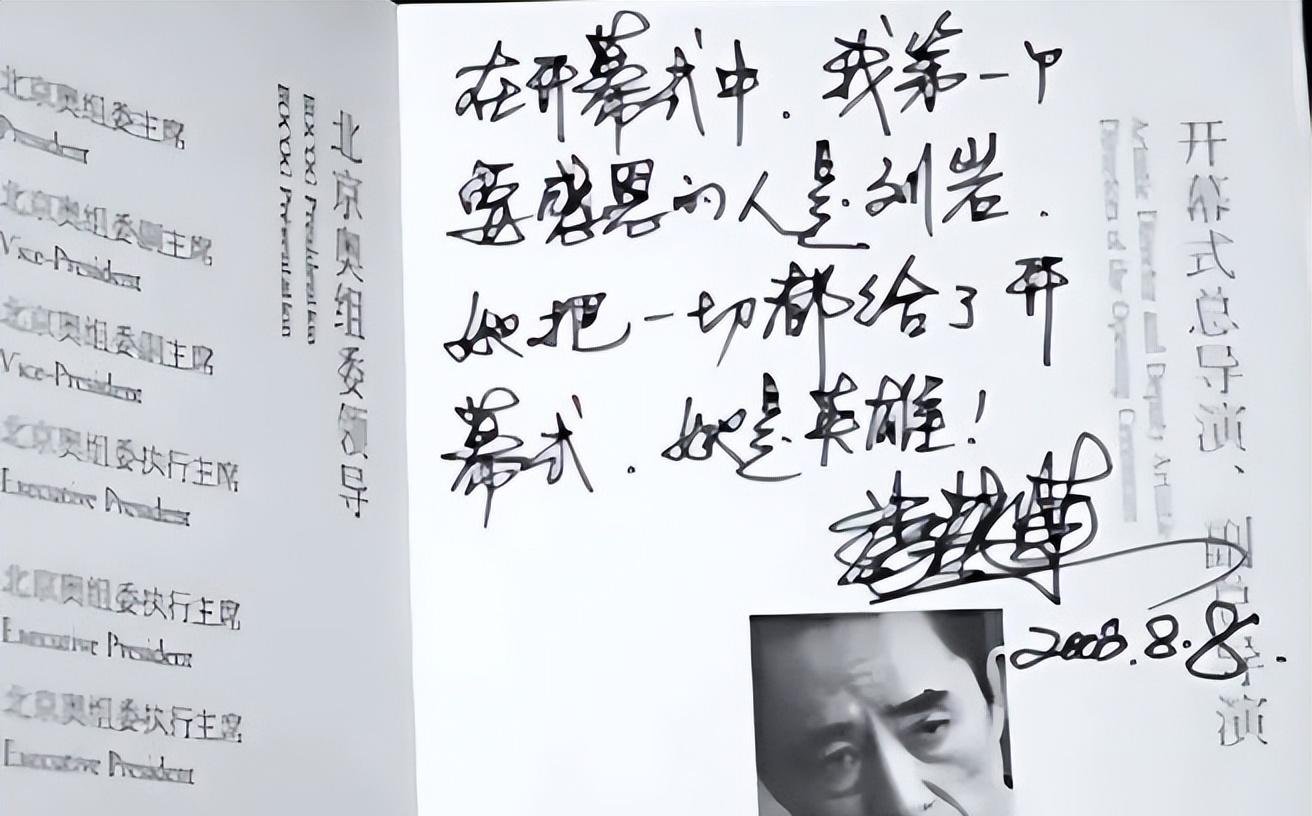 北京奥组委主席
President
北京奥组委副主席
Vice-President
北京奥组委副主席
Vice-President
北京奥组委执行主席
Executive President
北京奥组委执行主席
Executive President
北京奥组委执行主席
Executive President
北京奥组委领导
在开幕式中，我第一个
要感恩的人是刘岩．
她把一切都给了开
幕式．她是英雄！
2008.8.8.
开幕式总导演、